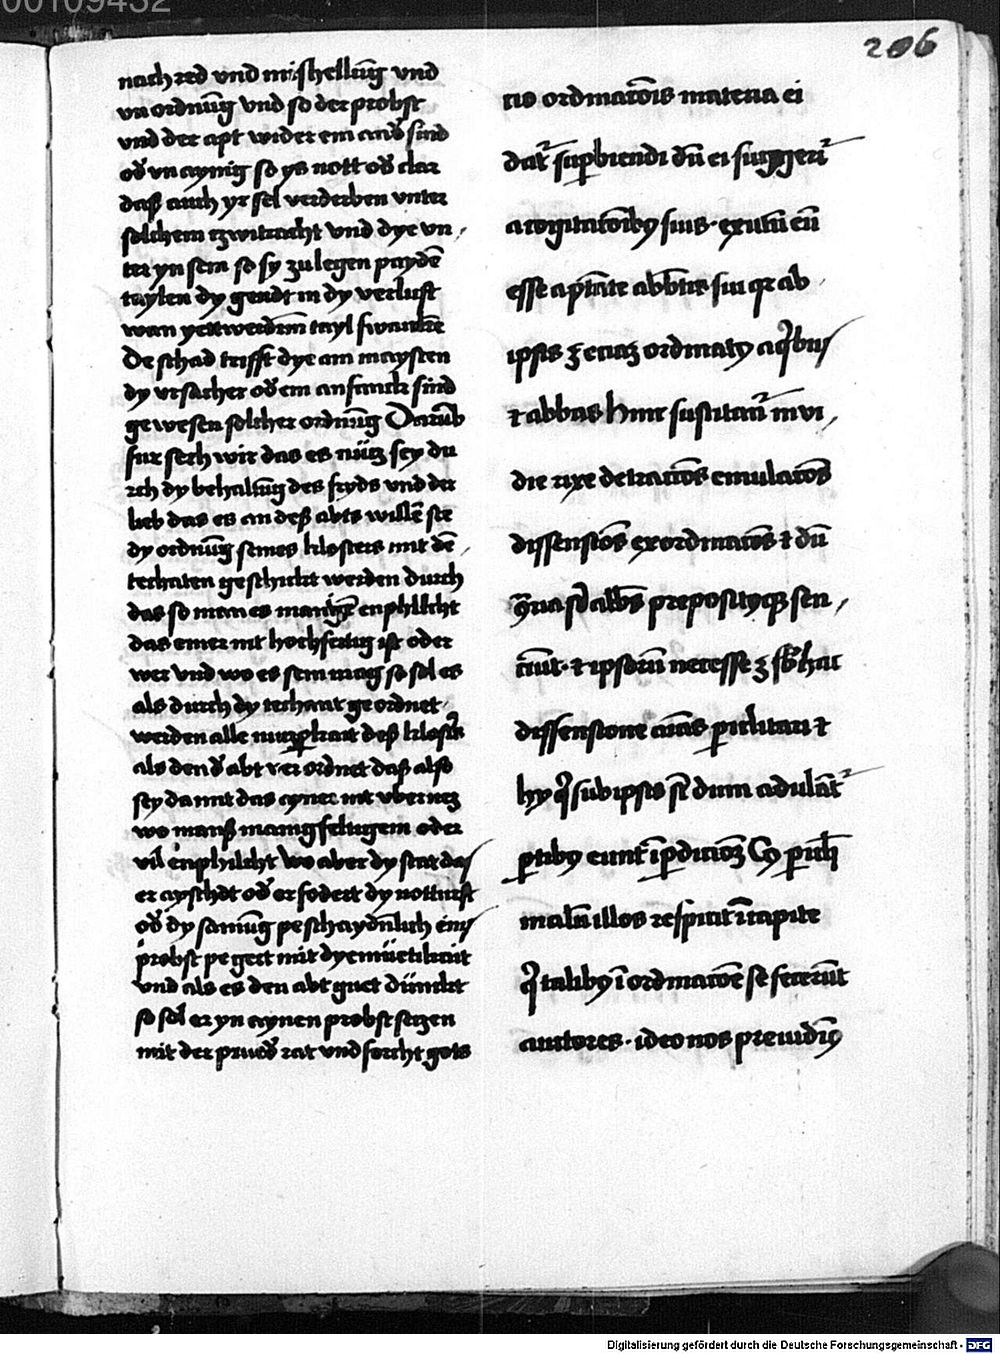 206
nach red vnd mishellūg vnd
vn ordnūg vnd so der probst
vnd der apt wider ein and̄ sind
od̄ vn aynig so ys nott od̄ clar
daß auch yr sel verderben vnter
solchem tzwitracht vnd dye vn,
ter yn sein so sy zu legen paydē
taylen dy gendt in dy verlust
wan yettwerdrm tayl
De schad trifft dye am maysten
dy vrsacher od̄ ein anfanck sind
gewesen solcher ordnūg Darūb
fur sech wir das es nütz sey du
rch dy behaltūg des fryds vnd der
lieb das es an deß abts willē ste
dy ordnūg seines klosters mit dē,
techaten geschickt werden durch
das so man es enphilcht
das einer nit hochfertig ist oder
wer vnd wo es sein mag so sol es
als durch dy techant geordnet
werden alle nutzperkait deß klosters
als den d̄ abt ver ordnet daß also
sey damit das ayner nit vbernez
wo manß manigfeltigem oder
vil enphilcht Wo aber dy stat das
er ayschdt od̄ er fodert dy notturft
od̄ dy samūg peschaydnlich eins
probst pegert mit dyemüetikait
vnd als es den abt guet dünckt
so sol er yn aynen probst setzen
mit der prued̄ rat vnd forcht gots
tio ordinatōis materia ei
datʳ supbiendi dū ei suggeriʳ
a cogitatōibꝯ suis · exutū eū
esse a ptāte abbtis sui qr ab
ipsis ꝫ eciaꝫ ordinatꝯ a qͥbus
⁊ abbas Hinc suscitātʳ invi,
die rixe detractōs emulatōs
dissensiōs exordinatōs ⁊ dū
ꝯtraria s abbs prepositꝯqꝫ sen,
ciūt · ⁊ ipsorū necesse ꝫ sb hac
dissensione aīas piclitari ⁊
hy qͥ sub ipsis st dum adulātʳ
ptibꝯ eunt ī pdicioꝫ Cꝯ picli
malū illos respicit ī capite
qͥ talibꝯ ī ordinatōe se fecerūt
auctores · ideo nos preuidimꝯ
Digitalisierung gefördert durch die Deutsche Forschungsgemeinschaft - DFG